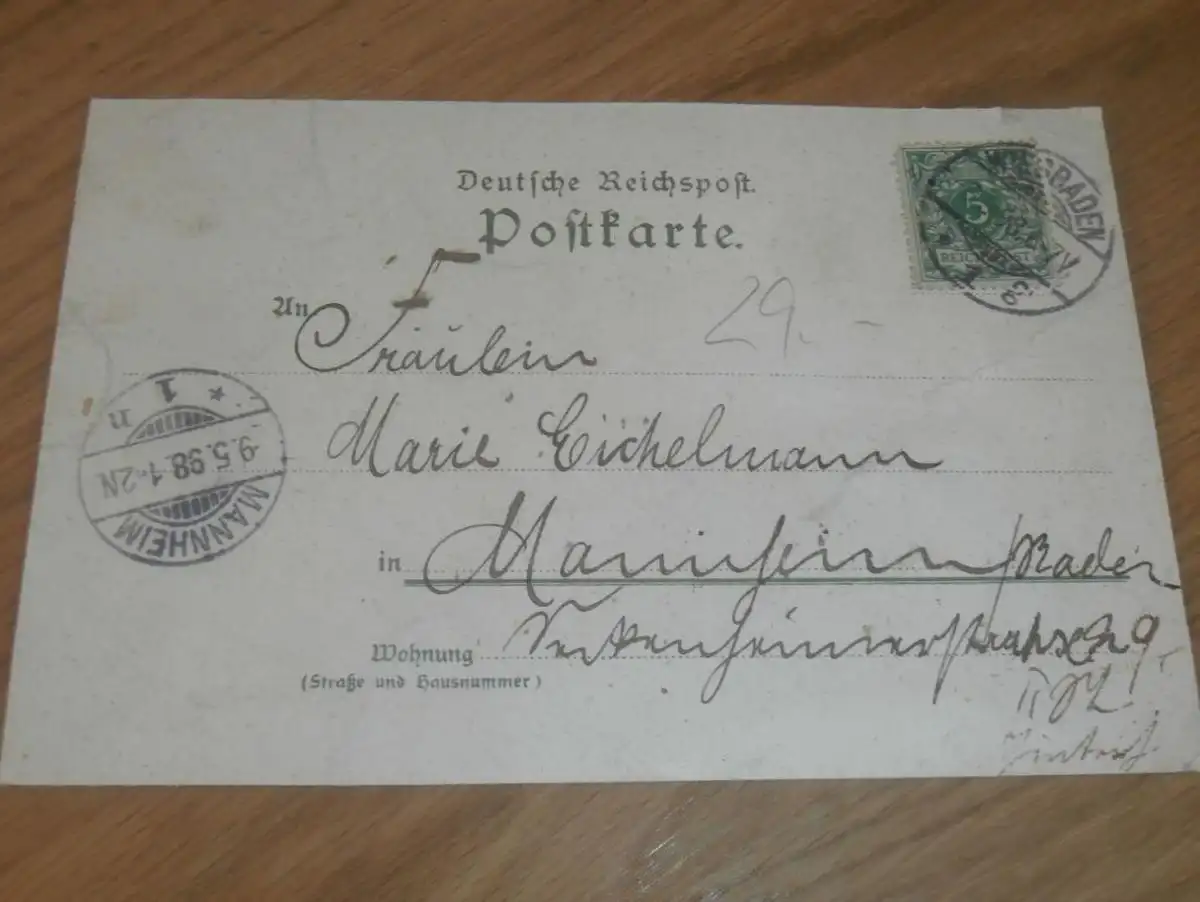 Deutsche Reichspost.
Postkarte.
5
REICHSPOST
WIESBADEN
An Fräulein
29.-
Marie Eichelmann
in Mannheim / Baden
Wohnung Seckenheimerstraße 29
(Straße und Hausnummer)
II
MANNHEIM
9.5.98.1-2N
* * 1 n